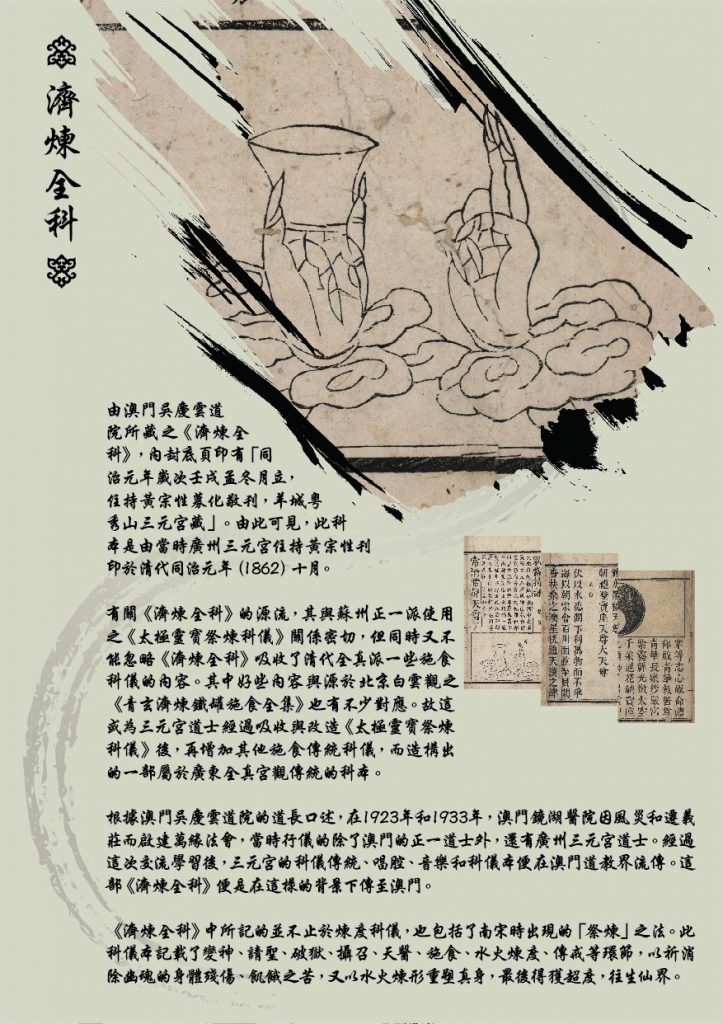 濟煉全科
由澳門吳慶雲道
院所藏之《濟煉全
科》，內封底頁印有「同
治元年歲次壬戌孟冬月立，
住持黃宗性募化敬刊，羊城粵
秀山三元宮藏」。由此可見，此科
本是由當時廣州三元宮住持黃宗性刊
印於清代同治元年 (1862) 十月。
有關《濟煉全科》的源流，其與蘇州正一派使用
之《太極靈寶祭煉科儀》關係密切，但同時又不
能忽略《濟煉全科》吸收了清代全真派一些施食
科儀的內容。其中好些內容與源於北京白雲觀之
《青玄濟煉鐵罐施食全集》也有不少對應。故這
或為三元宮道士經過吸收與改造《太極靈寶祭煉
科儀》後，再增加其他施食傳統科儀，而造構出
的一部屬於廣東全真宮觀傳統的科本。
根據澳門吳慶雲道院的道長口述，在1923年和1933年，澳門鏡湖醫院因風災和遷義
莊而啟建萬緣法會，當時行儀的除了澳門的正一道士外，還有廣州三元宮道士。經過
這次交流學習後，三元宮的科儀傳統、唱腔、音樂和科儀本便在澳門道教界流傳。這
部《濟煉全科》便是在這樣的背景下傳至澳門。
《濟煉全科》中所記的並不止於煉度科儀，也包括了南宋時出現的「祭煉」之法。此
科儀本記載了變神、請聖、破獄、攝召、天醫、施食、水火煉度、傳戒等環節，以祈消
除幽魂的身體殘傷、飢餓之苦，又以水火煉形重塑真身，最後得獲超度，往生仙界。